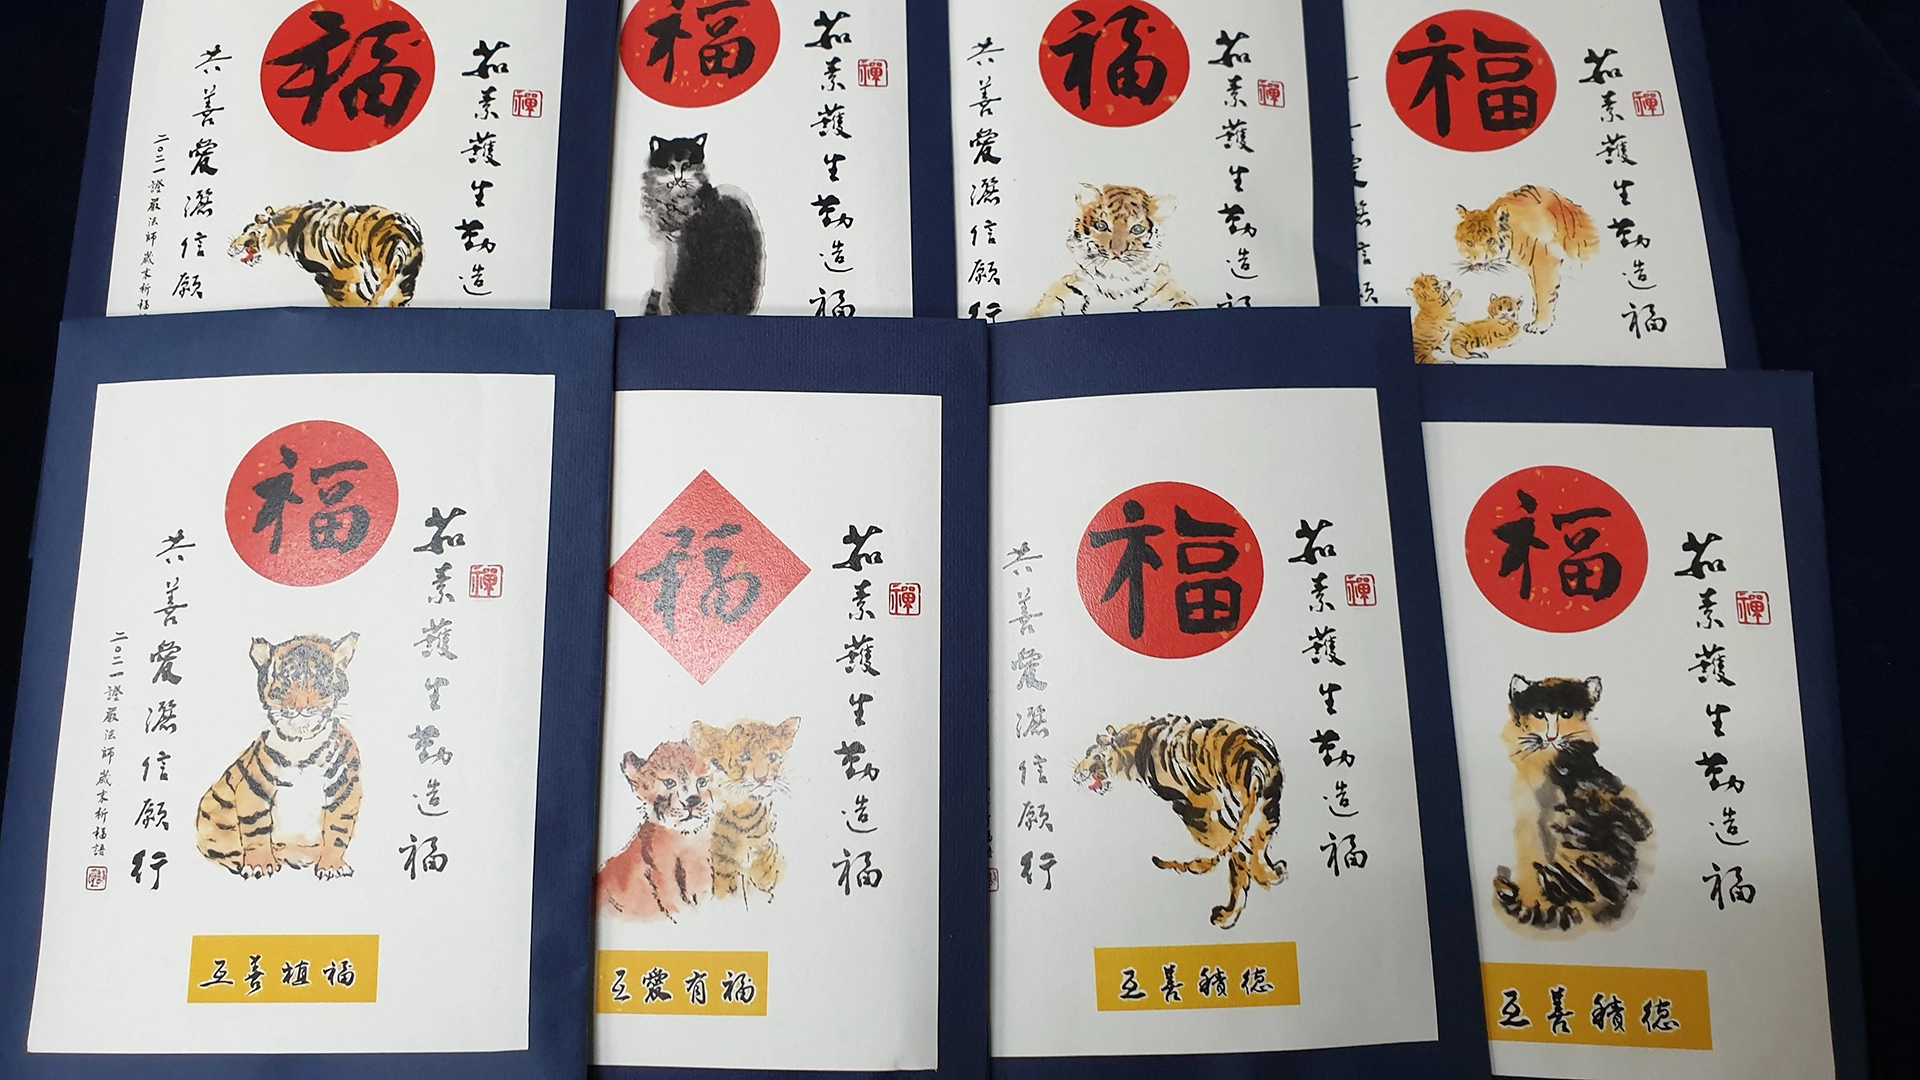 福
茹素護生勤造
禪
共善愛灑信願
二〇二一證嚴法師歲末祈福
福
茹素護生勤造福
禪
福
茹素護生勤造福
禪
共善愛灑信願行
福
茹素護生勤造福
禪
福
茹素護生勤造福
禪
共善愛灑信願行
二〇二一證嚴法師歲末祈福語
互善植福
福
茹素護生勤造福
禪
互愛有福
福
茹素護生勤造福
禪
共善愛灑信願行
互善積德
福
茹素護生勤造福
禪
互善積德